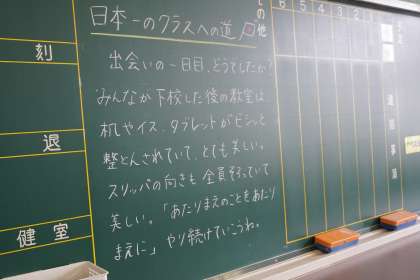 日本一のクラスへの道
出会いの一日目、どうでしたか?
みんなが下校した後の教室は、
机やイス、タブレットがビシッと
整とんされていて、とても美しい。
スリッパの向きも全員そろっていて
美しい。「あたりまえのことをあたり
まえに」やり続けていこうね。
刻
退
健室
の他
6 5 4 3 2 1